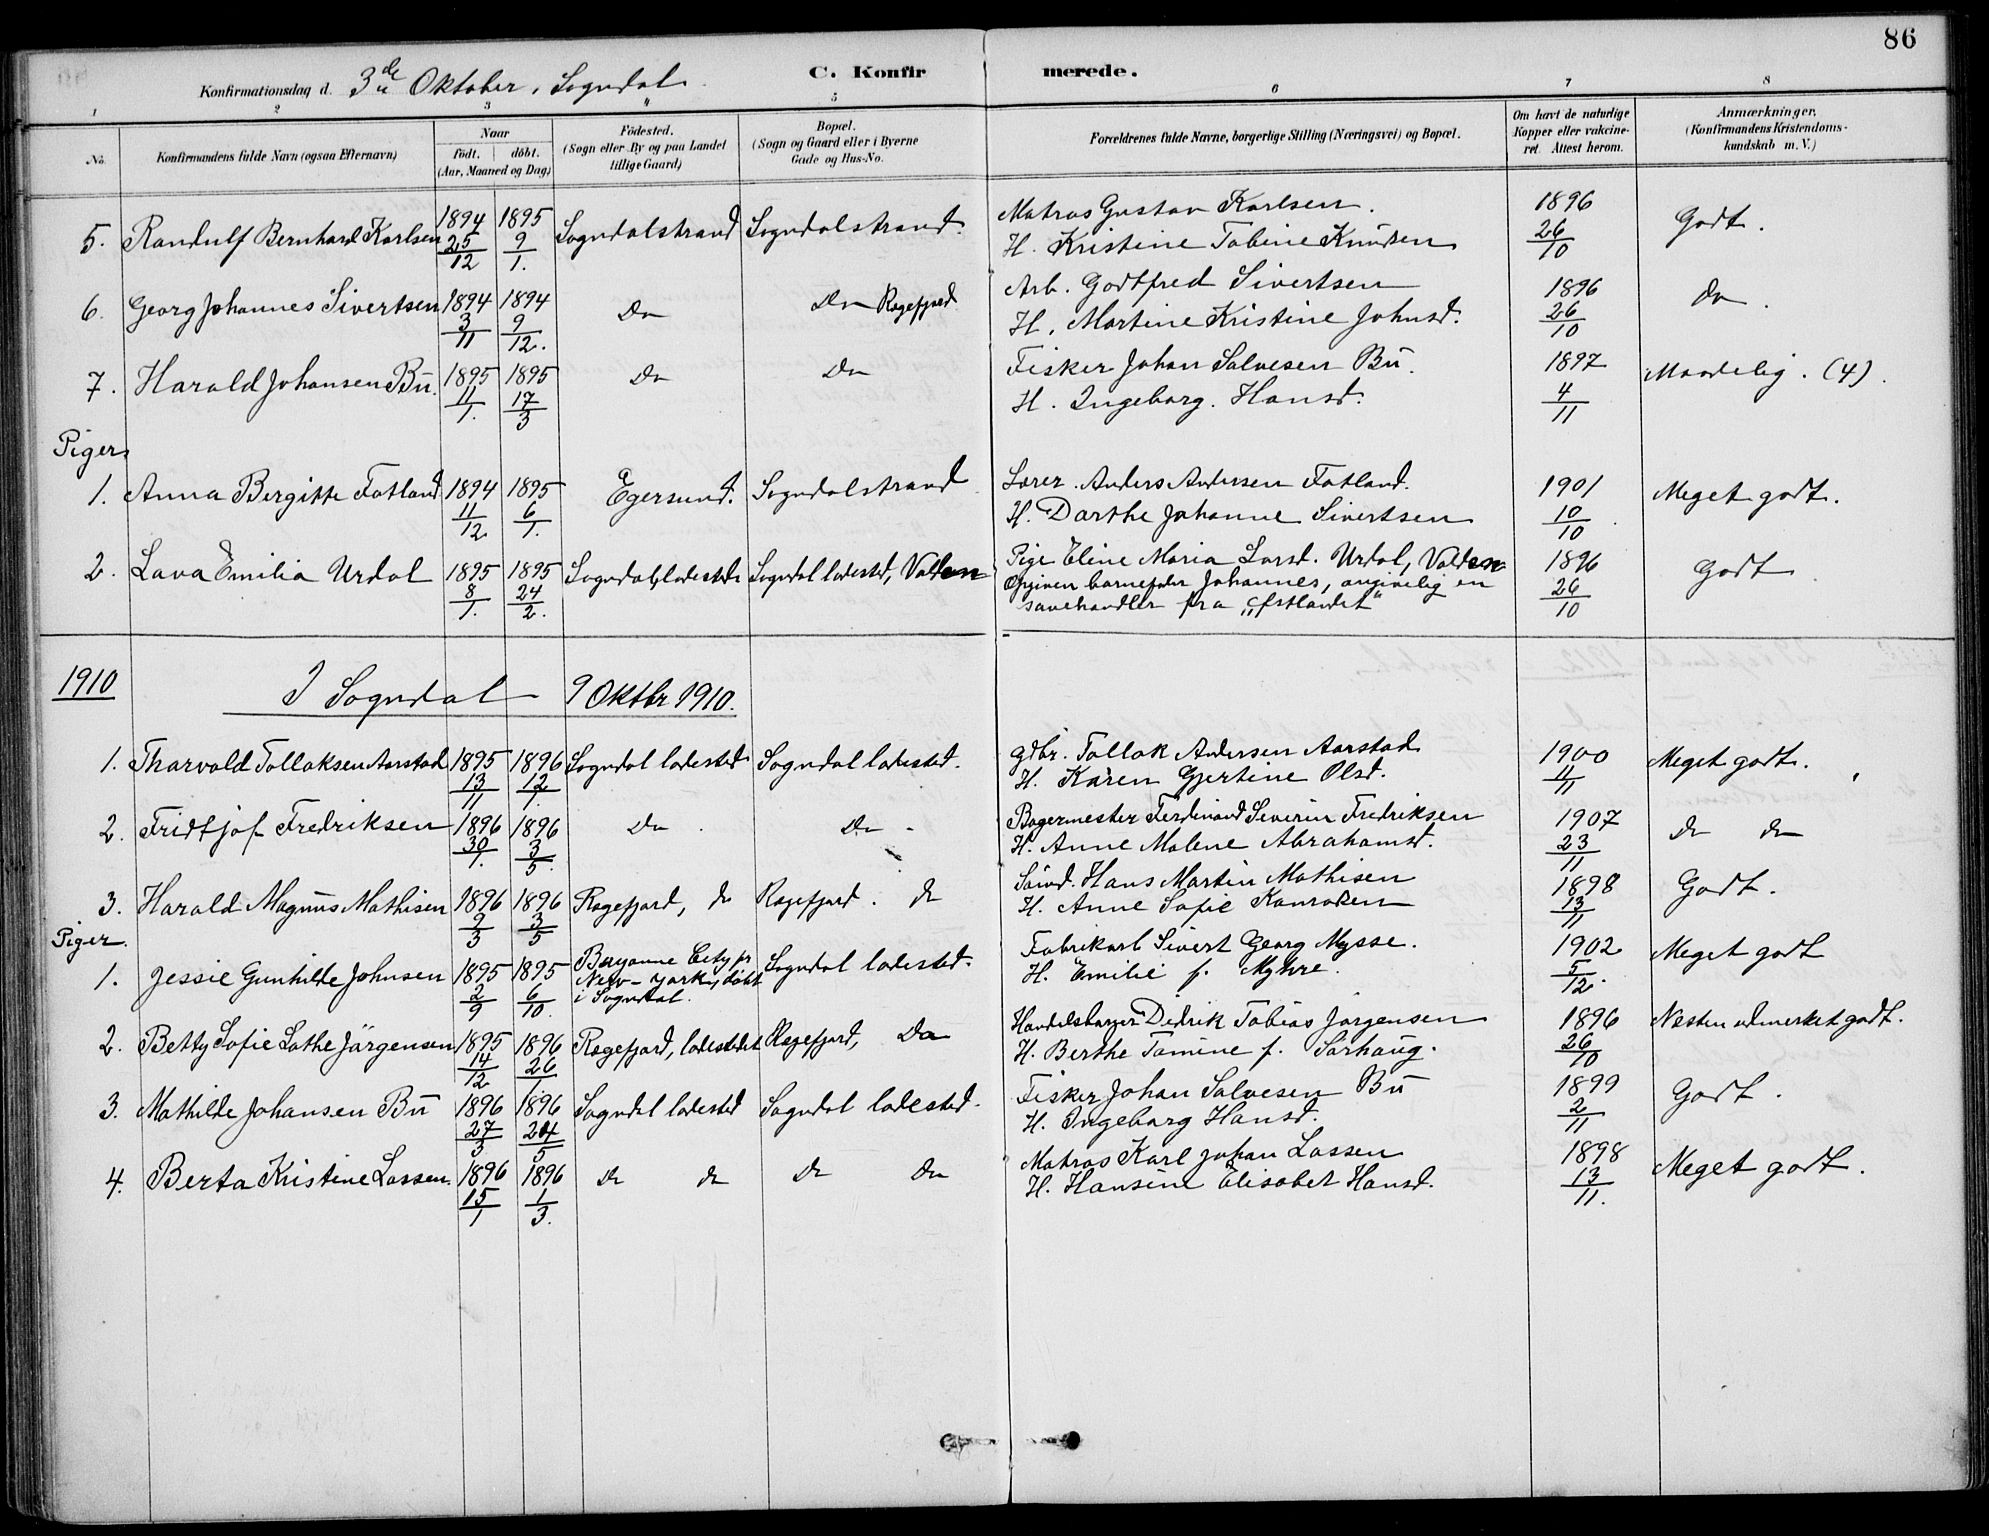 86
Konfirmationsdag d. 3de Oktober, Sogndal. C. Konfirmerede.
1 2 3 4 5 6 7 8
No. Konfirmandens fulde Navn (ogsaa Efternavn) Naar födt. döbt. (Aar, Maaned og Dag) Födested. (Sogn eller By og paa Landet tillige Gaard) Bopæl. (Sogn og Gaard eller i Byerne Gade og Hus-No. Forældrenes fulde Navne, borgerlige Stilling (Næringsvei) og Bopæl. Om havt de naturlige Kopper eller vakcineret. Attest herom. Anmærkninger. (Konfirmandens Kristendomskundskab m. V.)
5. Randulf Bernhard Karlsen 1894 25/12 1895 9/1. Sogndalstrand Sogndalstrand. Matros Gustav Karlsen. 1896 26/10 Godt.
H. Kristine Tobine Knudsen
6. Georg Johannes Sivertsen 1894 3/11 1894 9/12. Do Do Rægefjord Arb. Godtfred Sivertsen 1896 26/10 Do.
H. Martine Kristine Johnsd.
7. Harald Johansen Bü. 1895 11/1. 1895 17/3 Do Do Fisker Johan Salvesen Bü. 1897 4/11 Maadelig. (4).
H. Ingeborg. Hansd.
Piger
1. Anna Bergitte Fotland 1894 11/12 1895 6/1. Egersund. Sogndalstrand Lærer. Anders Andersen Fotland. 1901 10/10 Meget godt.
H. Dorthe Johanne Sivertsen
2. Lava Emilia Urdal 1895 8/1. 1895 24/2. Sogndal ladested Sogndal ladested, Valdem Pige Eline Maria Larsd. Urdal, Valdem 1896 26/10 Godt
Opgiven barnefader Johannes, angivelig en
sauehandler fra „Østlandet"
1910 I Sogndal 9 Oktbr 1910.
1. Tharvald Tollaksen Aarstad 1895 13/11 1896 12/1. Sogndal ladested Sogndal ladested. Gdbr. Tollak Andersen Aarstad 1900 11/11 Meget godt.
H. Karen Gjertine Olsd.
2. Fridtjof Fredriksen 1896 30/1. 1896 3/5. Do. Do. Bagermester Ferdinand Severin Fredriksen 1907 23/11 Do Do
H. Anne Malene Abrahamsd.
3. Harald Magnus Mathisen 1896 9/3 1896 3/5 Rægefjord, do Rægefjord. do Sömd. Hans Martin Mathisen 1898 13/11 Godt.
H. Anne Sofie
Piger.
1. Jessie Gunhilde Johnsen 1895 2/9 1895 6/10. Bayonne City pr New-York, döbt i Sogndal. Sogndal ladested. Fabrikarb Sivert Georg Mysse. 1902 5/12. Meget godt
H. Emilie f. Myhre.
2. Betty Sofie Lothe Jörgensen 1895 14/12 1896 26/1. Rægefjord, ladestedet Rægefjord, Do Handelsborger Didrik Tobias Jörgensen 1896 26/10 Næsten udmerket godt.
H. Berthe Tomine f. Sörhaug.
3. Mathilde Johansen Bü 1896 27/3 1896 24/5 Sogndal ladested Sogndal ladested. Fisker Johan Salvesen Bü 1899 2/11 Godt.
H. Ingeborg Hansd.
4. Berta Kristine Lassen. 1896 15/1 1896 1/3. Do do Do Do Matros Karl Johan Lassen 1898 13/11. Meget godt.
H. Hansine Elisabet Hansd.